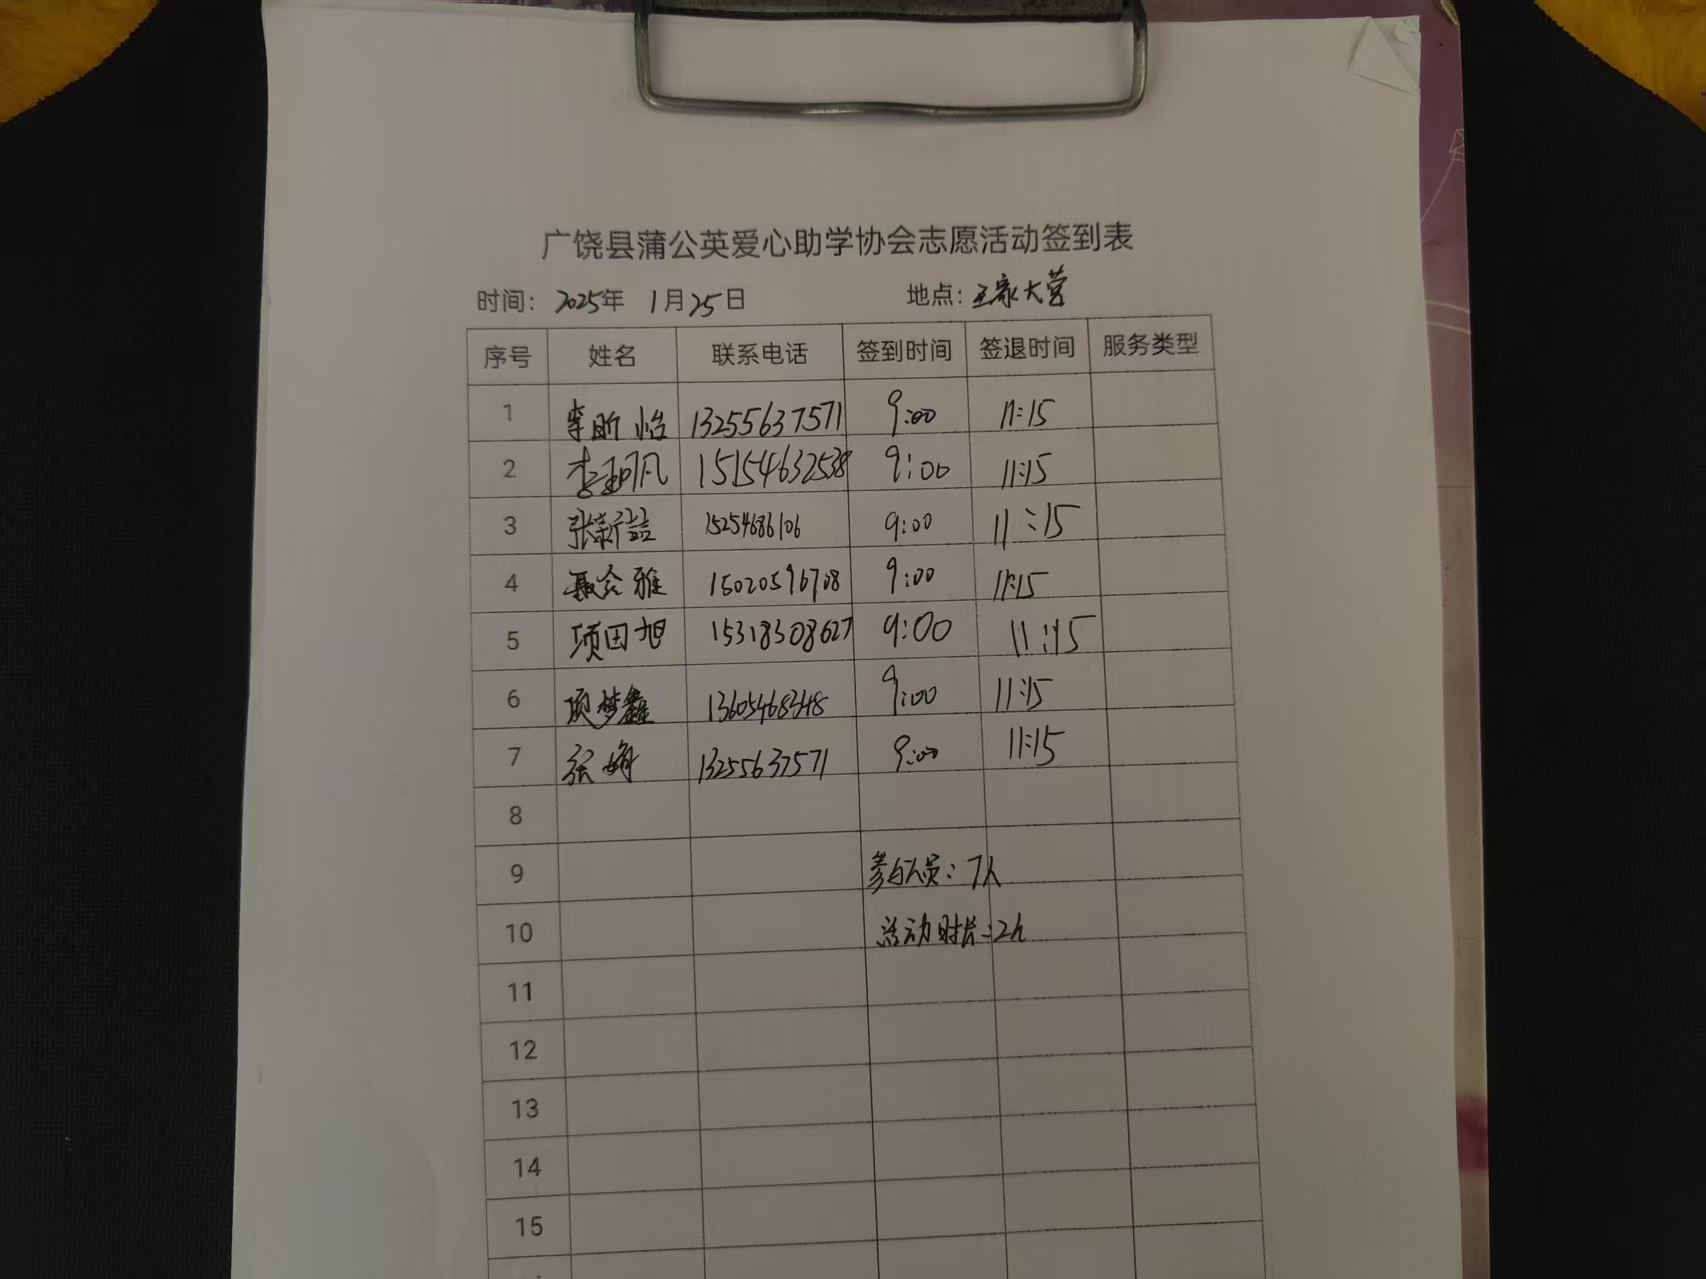 广饶县蒲公英爱心助学协会志愿活动签到表
时间: 2025年 1月25日 地点: 王家大营
序号 姓名 联系电话 签到时间 签退时间 服务类型
1 李昕怡 13255637571 9:00 11:15
2 李珂凡 15154632538 9:00 11:15
3 张新喆 15254686106 9:00 11:15
4 聂令雅 15020596708 9:00 11:15
5 项田旭 15318308627 9:00 11:15
6 项梦鑫 13605468348 9:00 11:15
7 张娟 13255637571 9:00 11:15
8
9 参与人员: 7人
10 活动时长: 2h
11
12
13
14
15